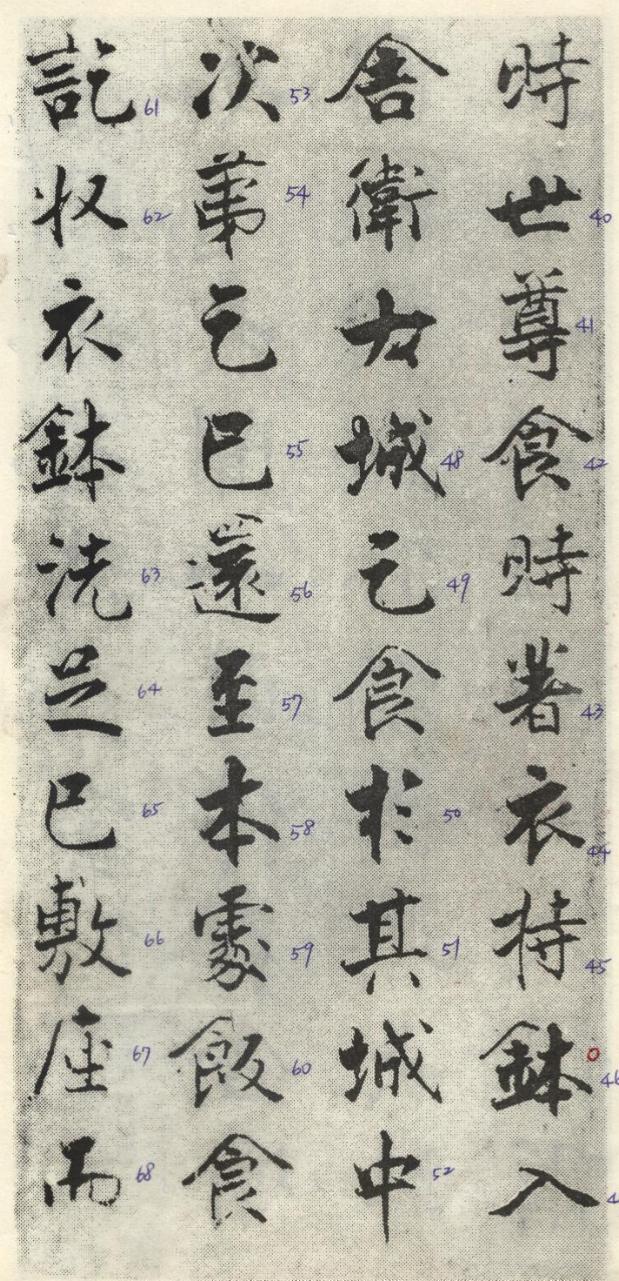 時世尊食時著衣持鉢入
40 41 42 43 44 45 46
舍衛大城乞食於其城中
48 49 50 51 52
次苐乞已還至本處飯食
53 54 55 56 57 58 59 60
訖収衣鉢洗足已敷座而
61 62 63 64 65 66 67 68